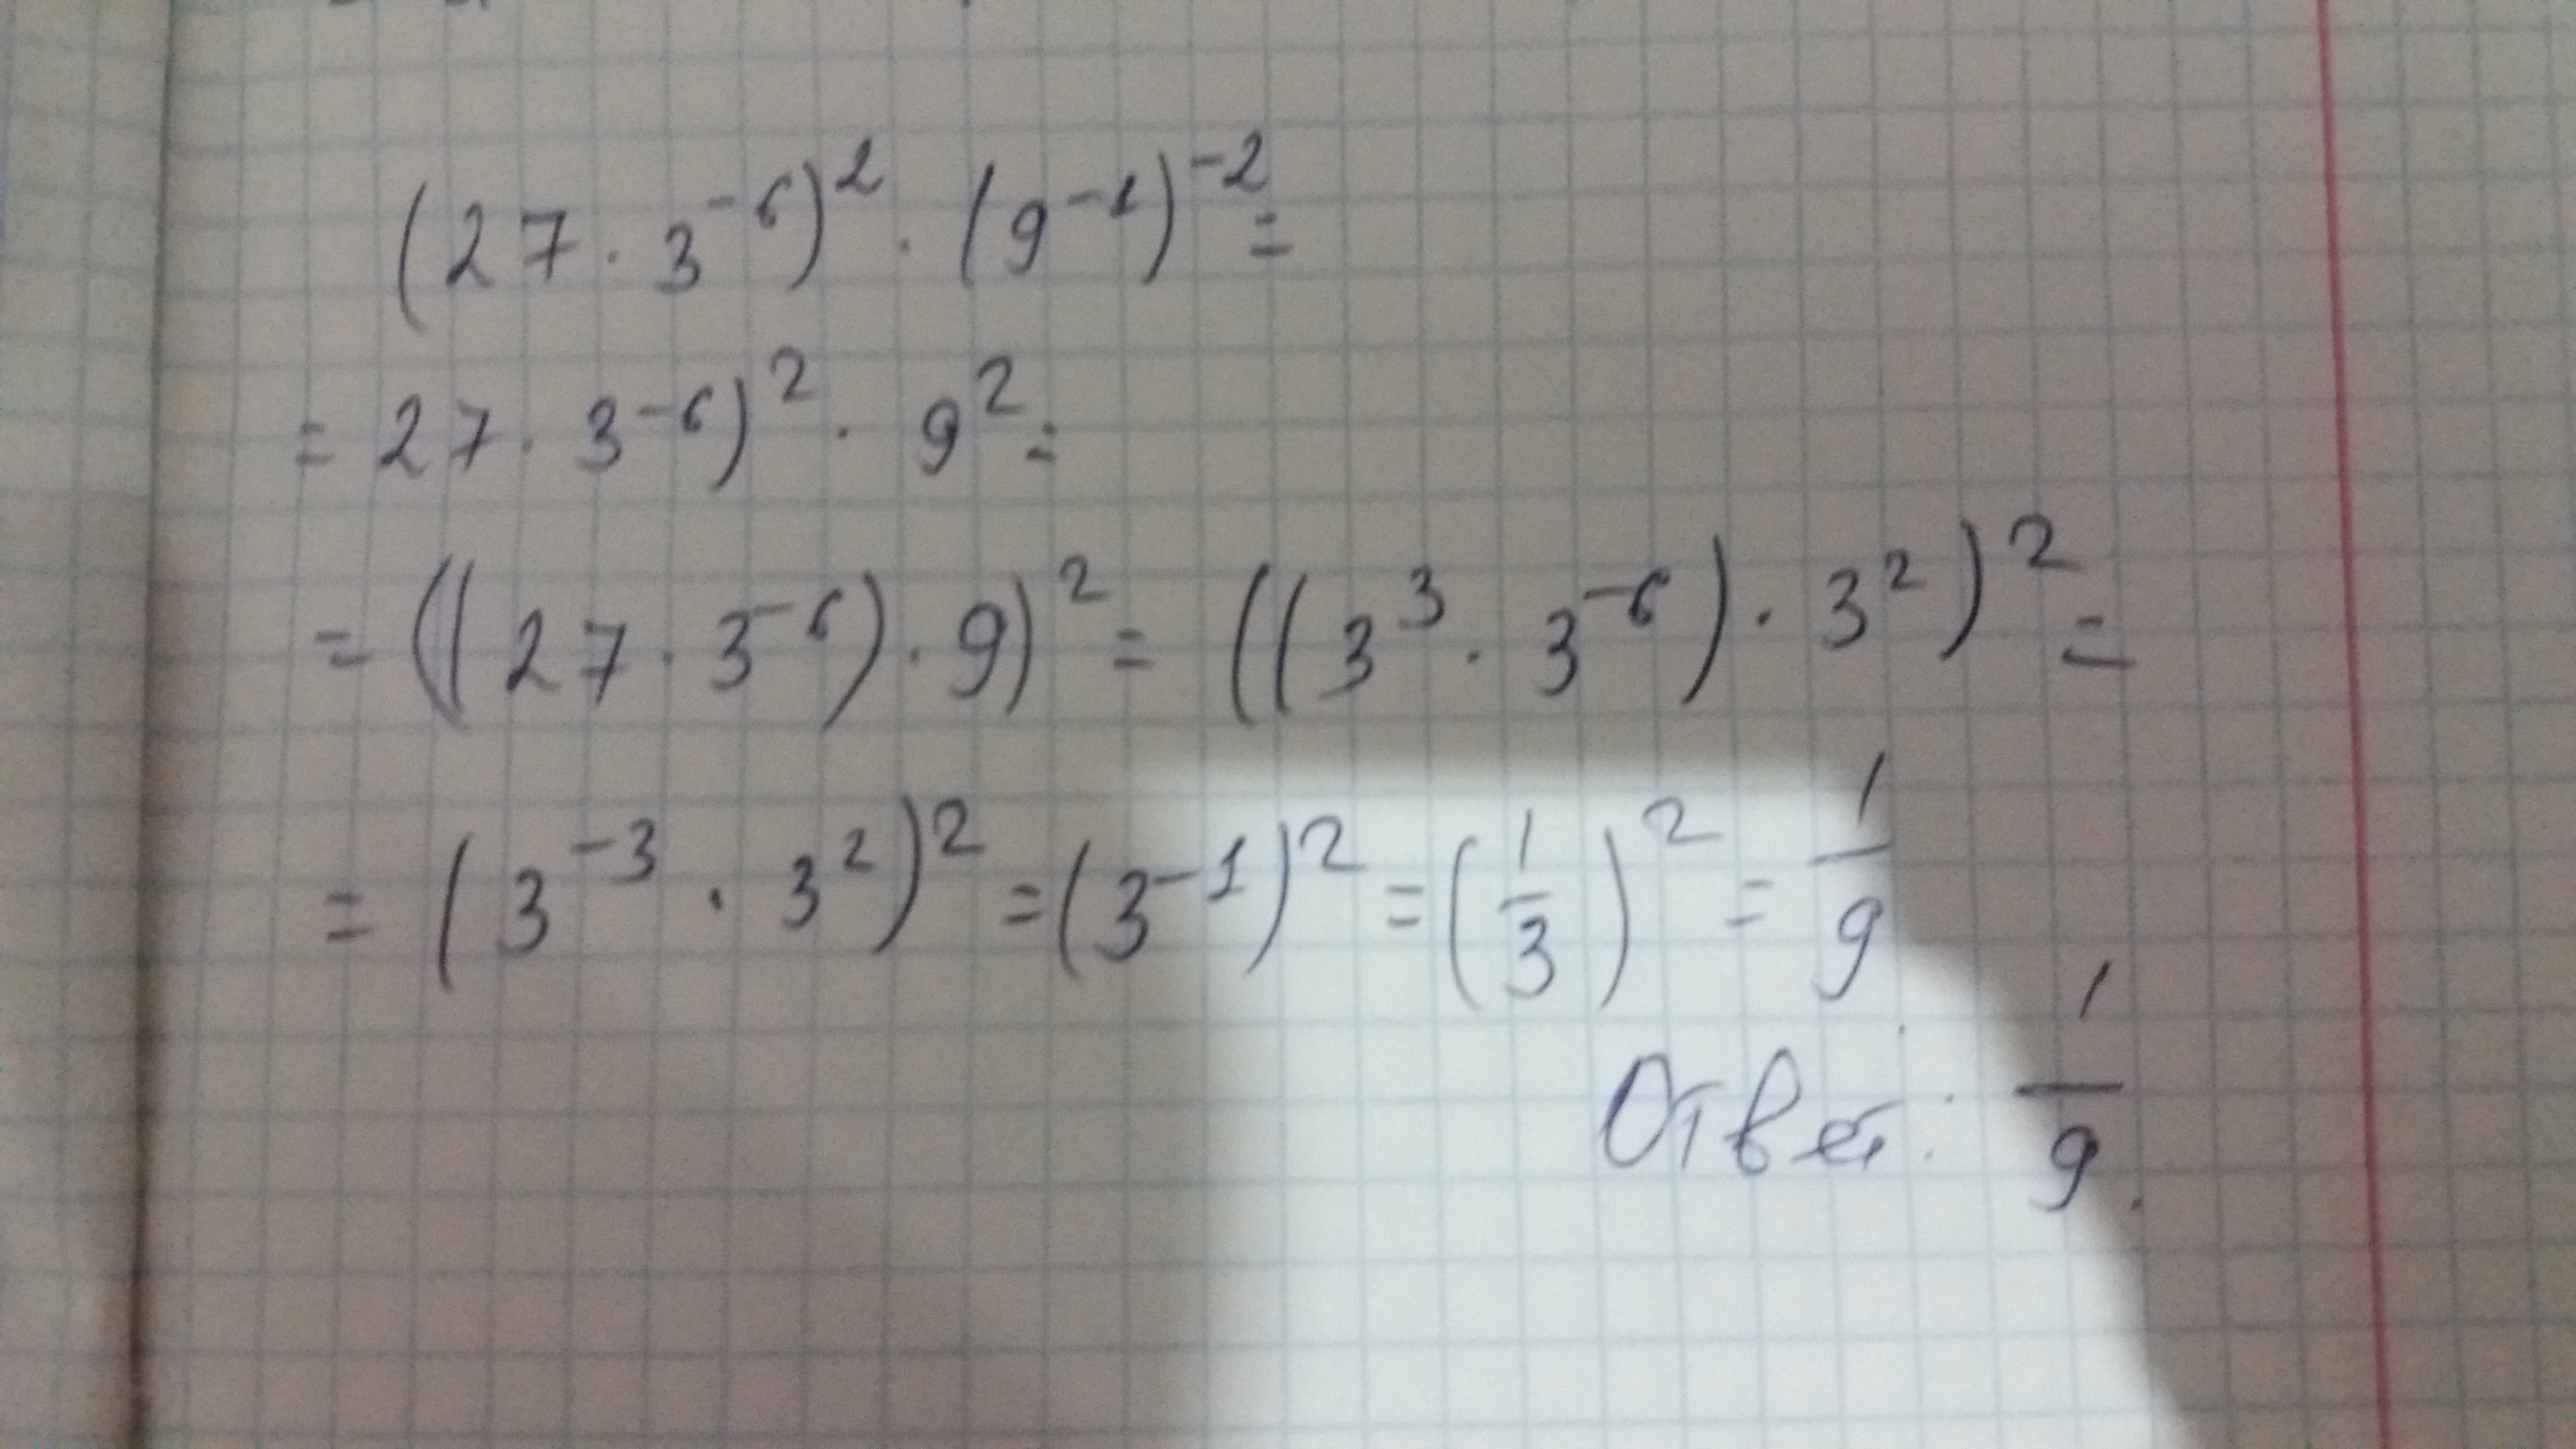 (27 · 3⁻⁶)² · (9⁻¹)⁻² =
= 27 · 3⁻⁶)² · 9² =
= ((27 · 3⁻⁶) · 9)² = ((3³ · 3⁻⁶) · 3²)² =
= (3⁻³ · 3²)² = (3⁻¹)² = (1/3)² = 1/9
Ответ: 1/9.